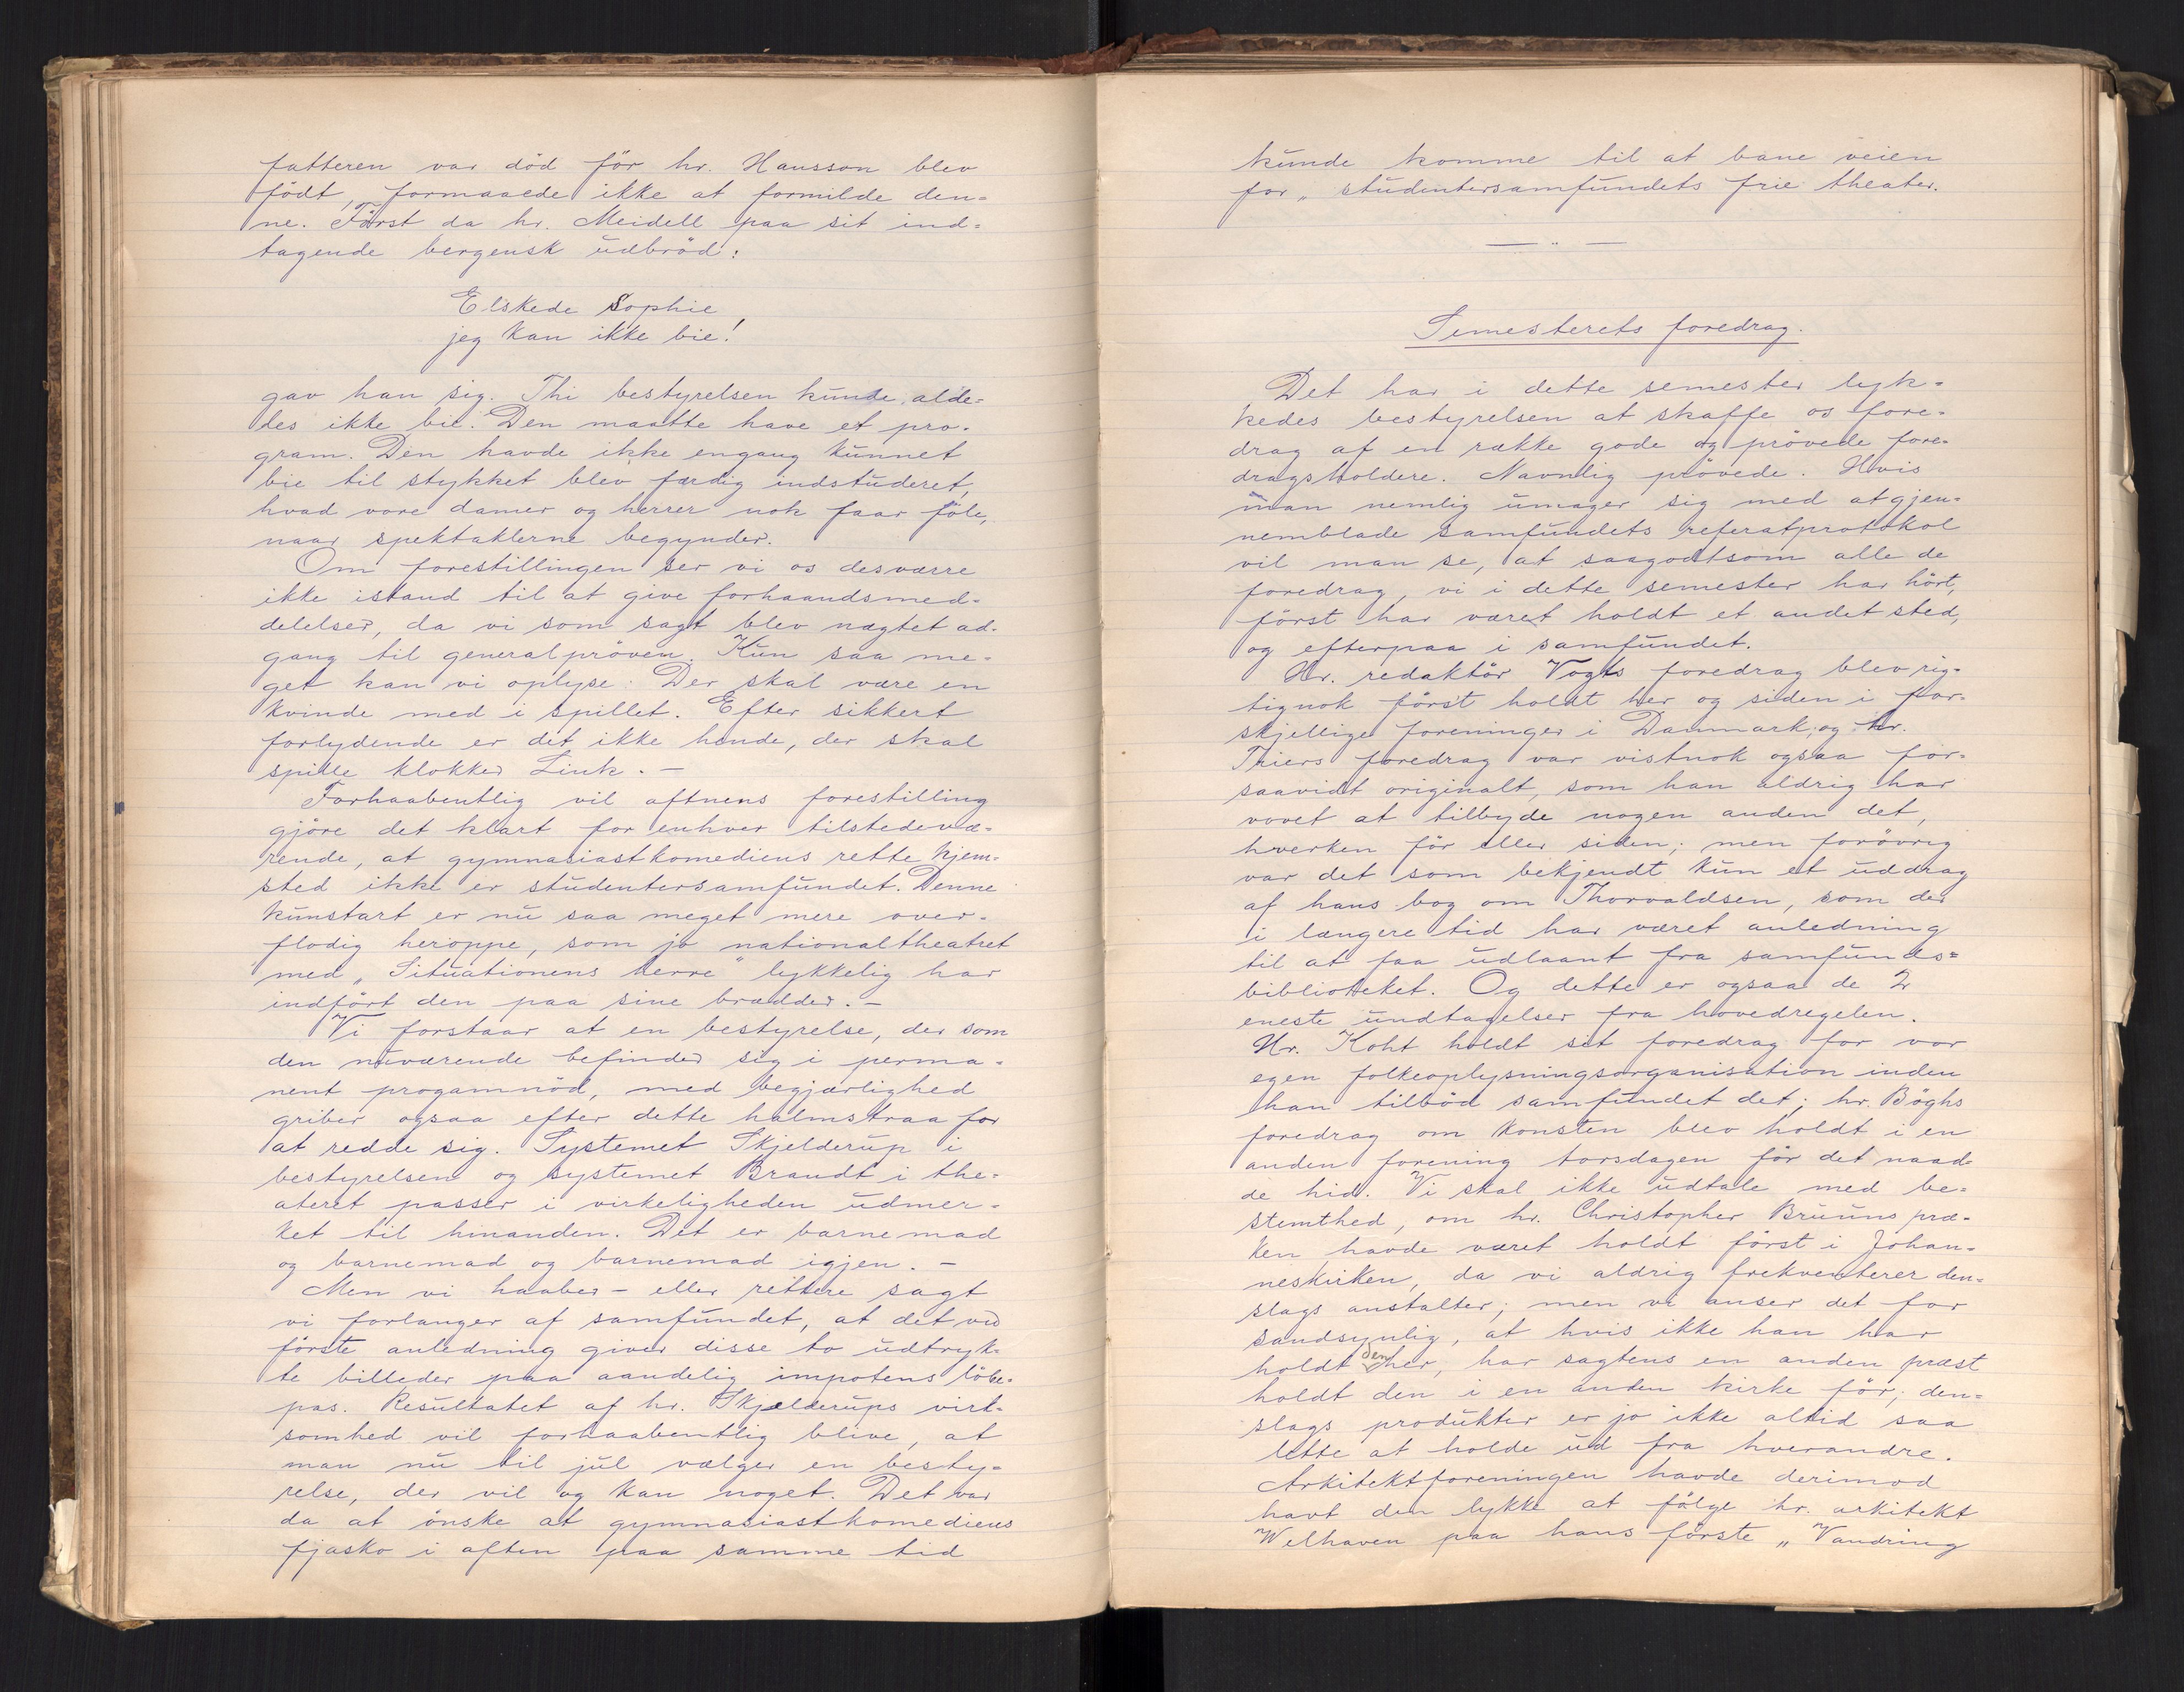 fatteren var död för hr. Hansson blev
födt, formaaede ikke at formilde den=
ne. Först da hr. Meidell paa sit ind=
tagende bergensk udbröd:
Elskede Sophie
jeg kan ikke bie!
gav han sig. Thi bestyrelsen kunde alde=
les ikke bie. Den maatte have et pro=
gram. Den havde ikke engang kunnet
bie til stykket blev færdig indstuderet,
hvad vore damer og herrer nok faar föle,
naar spektaklerne begynder.
Om forestillingen ser vi os desværre
ikke istand til at give forhaandsmed=
delelser, da vi som sagt blev nægtet ad=
gang til generalpröven. Kun saa me=
get kan vi oplyse: Der skal være en
kvinde med i spillet. Efter sikkert
forlydende er det ikke hende, der skal
spille klokker Link. —
Forhaabentlig vil aftnens forestilling
gjöre det klart for enhver tilstedevæ=
rende, at gymnasiastkomediens rette hjem=
sted ikke er studentersamfundet. Denne
kunstart er nu saa meget mere over=
flödig heroppe, som jo nationaltheatret
med „Situationens herre" lykkelig har
indfört den paa sine brædder. —
Vi forstaar at en bestyrelse, der som
den nuværende befinder sig i perma=
nent progamnöd, med begjærlighed
griber ogsaa efter dette halmstraa for
at redde sig. Systemet Skjelderup i
bestyrelsen og systemet Brandt i the=
ateret passer i virkeligheden udmer=
ket til hinanden. Det er barnemad
og barnemad og barnemad igjen. —
Men vi haaber — eller rettere sagt
vi forlanger af samfundet, at det ved
förste anledning giver disse to udtryk=
te billeder paa aandelig impotens löbe=
pas. Resultatet af hr. Skjelderups virk=
somhed vil forhaabentlig blive, at
man nu til jul vælger en besty=
relse, der vil og kan noget. Det var
da at önske at gymnasiastkomediens
fjasko i aften paa samme tid
kunde komme til at bane veien
for „studentersamfundets frie theater.
— " —
Semesterets foredrag.
Det har i dette semester lyk=
kedes bestyrelsen at skaffe os fore=
drag af en række gode og prövede fore=
dragsholdere. Navnlig prövede. Hvis
man nemlig umager sig med at gjen=
nemblade samfundets referatprotokol
vil man se, at saagodtsom alle de
foredrag, vi i dette semester har hört,
först har været holdt et andet sted,
og efterpaa i samfundet.
Hr. redaktör Vogts foredrag blev rig=
tignok först holdt her og siden i for=
skjellige foreninger i Danmark; og hr.
Triers foredrag var vistnok ogsaa for=
saavidt originalt, som han aldrig har
vovet at tilbyde nogen anden det,
hverken för eller siden; men forövrig
var det som bekjendt kun et uddrag
af hans bog om Thorvaldsen, som der
i længere tid har været anledning
til at faa udlaant fra samfunds=
biblioteket. Og dette er ogsaa de 2
eneste undtagelser fra hovedregelen.
Hr. Koht holdt sit foredrag for vor
egen folkeoplysningsorganisation inden
han tilböd samfundet det; hr. Böghs
foredrag om konsten blev holdt i en
anden forening torsdagen för det naad=
de hid. Vi skal ikke udtale med be=
stemthed, om hr. Christopher Bruuns præ=
ken havde været holdt först i Johan=
neskirken, da vi aldrig frekventerer den=
slags anstalter; men vi anser det for
sandsynlig, at hvis ikke han har
holdt den her, har sagtens en anden præst
holdt den i en anden kirke för; den=
slags produkter er jo ikke altid saa
lette at holde ud fra hverandre.
Arkitektforeningen havde derimod
havt den lykke at fölge hr. arkitekt
Welhaven paa hans förste „Vandring